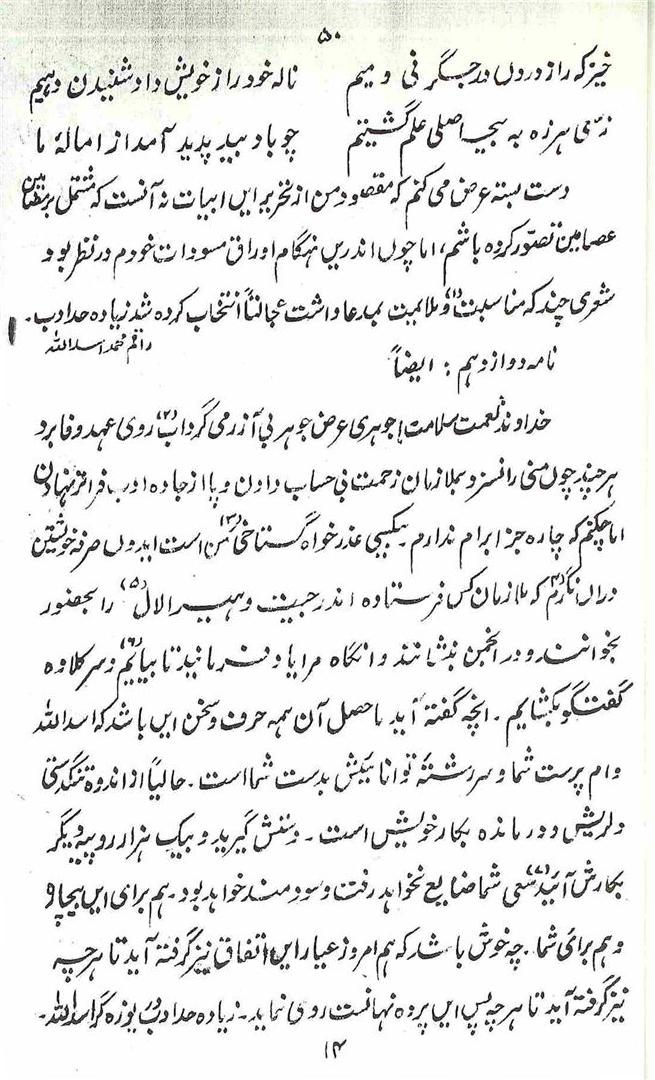 ۵۰
خیز که راز درون در جگر نی دمیم ناله خود را ز خویش داد شنیدن دهیم
زسعی هرزه به بیحاصلی علم گشتیم چو باد بید پدید آمد از امالهٔ ما
دست بسته عرض می کنم که مقصود من از تحریر این ابیات نه آنست که مشتمل بر مضامین
تصور کرده باشم، اما چوں اندریں هنگام اوراق مسودات خودم در نظر بود
شعری چند که مناسبت (۱) و ملایمت بمدعا داشت عجالتاً انتخاب کرده شد زیاده حد ادب۔
راقم محمد اسد الله
نامه دوازدهم : ایضاً
خداوند نعمت سلامت! جوهری عرض جوهر بی آزرمی گرداب (۲) روی عهد و وفا برد
هر چند چون منی را نسزد بملازمان زحمت بی حساب دادن و پا از جاده ادب فراتر نهادن
اما چکنم که چاره جز ابرام ندارم۔ بیکسی عذر خواه گستاخی (۳) من است ایدون صرفه خویشتن
دراں نگرم (۴) که ملازمان کس فرستاده اندر جیت و هیرالال (۵) را بحضور
بخوانند و در انجمن بنشانند و انگاه مرا یاد فرمایند تا بیایم (۶) و سر کلاوه
گفتگو بکشایم۔ انچه گفته آید ماحصل آن همه حرف و سخن این باشد که اسد الله
وام پرست شما و سر رشتهٔ توانائیش بدست شما است۔ حالیا از اندوه تنگدستی
دلریش و درمانده بکار خویش است۔ دستش گیرید و بیک هزار روپیه دیگر
بکارش آئید (۷) سعی شما ضایع نخواهد رفت و سودمند خواهد بود۔ هم برای این بیچاره
و هم برای شما۔ چه خوش باشد که هم امروز عیار این اتفاق نیز گرفته آید تا هر چه
نیز گرفته آید تا هر چه پس این پرده نهانست روی نماید۔ زیاده حد ادب دریوزه گر اسد الله۔
۱۴